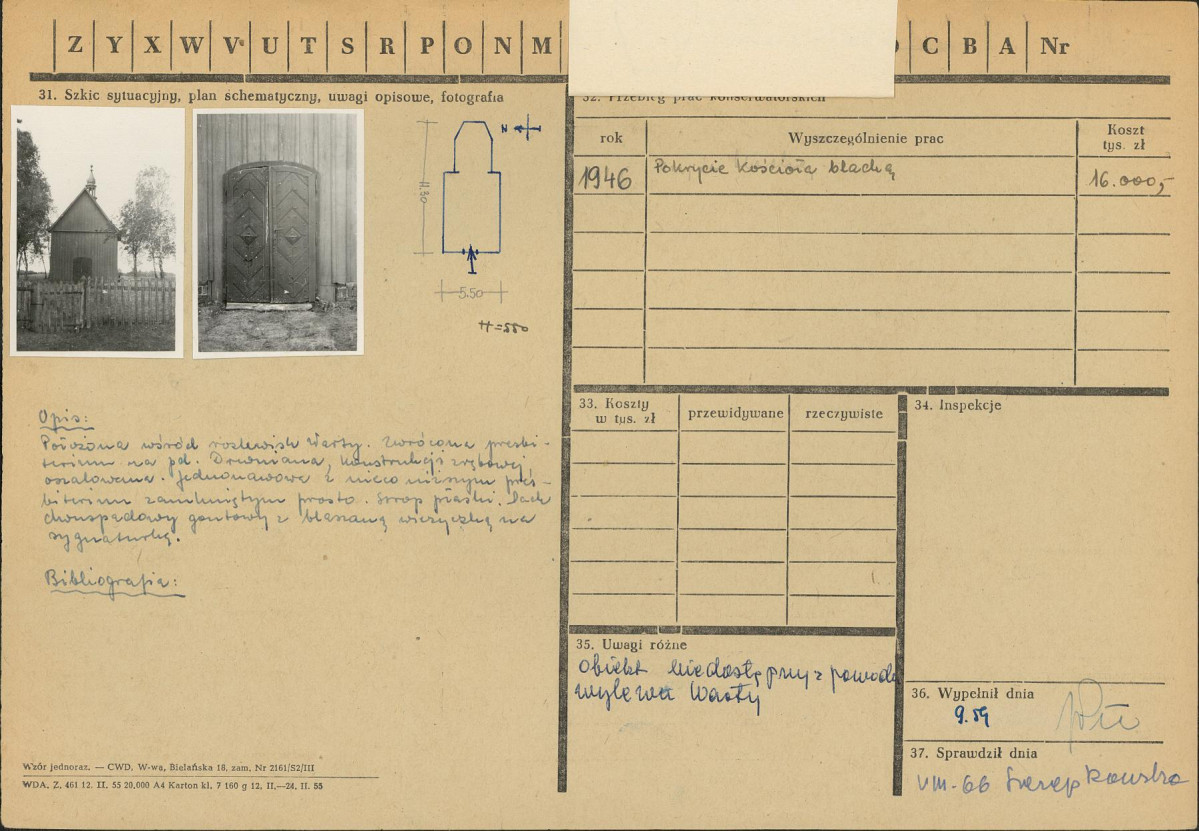 Z Y X W V U T S R P O N M C B A Nr
31. Szkic sytuacyjny, plan schematyczny, uwagi opisowe, fotografia
N
11.30
5.50
H=550
Opis:
Położona wśród rozlewisk Warty. Zwrócona prezbi-
terium na pd. Drewniana, konstrukcji zrębowej,
oszalowana. Jednonawowa z nieco niższym prez-
biterium zamkniętym prosto. Strop płaski. Dach
dwuspadowy gontowy z blaszaną wieżyczką na
sygnaturkę.
Bibliografia:
Wzór jednoraz. — CWD. W-wa, Bielańska 18. zam. Nr 2161/S2/III
WDA. Z. 461 12. II. 55 20.000 A4 Karton kl. 7 160 g 12. II.—24. II. 55
32. Przebieg prac konserwatorskich
rok Wyszczególnienie prac Koszt
tys. zł
1946 Pokrycie kościoła blachą 16.000,-
33. Koszty
w tys. zł przewidywane rzeczywiste
34. Inspekcje
35. Uwagi różne
Obiekt niedostępny z powodu
wylewu Warty
36. Wypełnił dnia
9.59
37. Sprawdził dnia
VIII-66